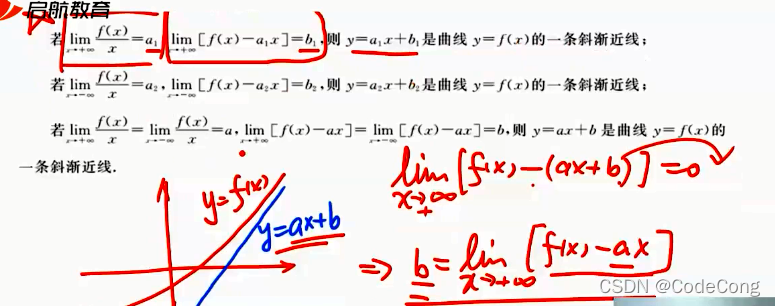 启航教育
若 lim_{x→+∞} f(x)/x = a₁, lim_{x→+∞} [f(x)-a₁x]=b₁, 则 y=a₁x+b₁是曲线 y=f(x)的一条斜渐近线;
若 lim_{x→-∞} f(x)/x = a₂, lim_{x→-∞} [f(x)-a₂x]=b₂, 则 y=a₂x+b₂是曲线 y=f(x)的一条斜渐近线;
若 lim_{x→+∞} f(x)/x = lim_{x→-∞} f(x)/x = a, lim_{x→+∞} [f(x)-ax]= lim_{x→-∞} [f(x)-ax]=b, 则 y=ax+b 是曲线 y=f(x)的
一条斜渐近线.
lim_{x→+∞} [f(x)-(ax+b)]=0
y=f(x)
y=ax+b
⇒ b= lim_{x→+∞} [f(x)-ax]
CSDN @CodeCong